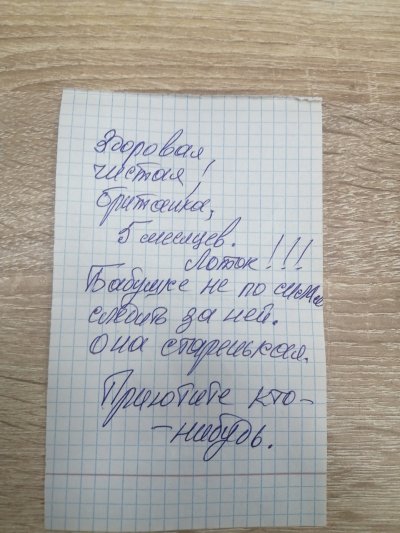 Здоровая,
чистая!
британка,
5 месяцев.
Лоток!!!
Бабушке не по силам
следить за ней.
Она старенькая.
Приютите кто-
-нибудь.